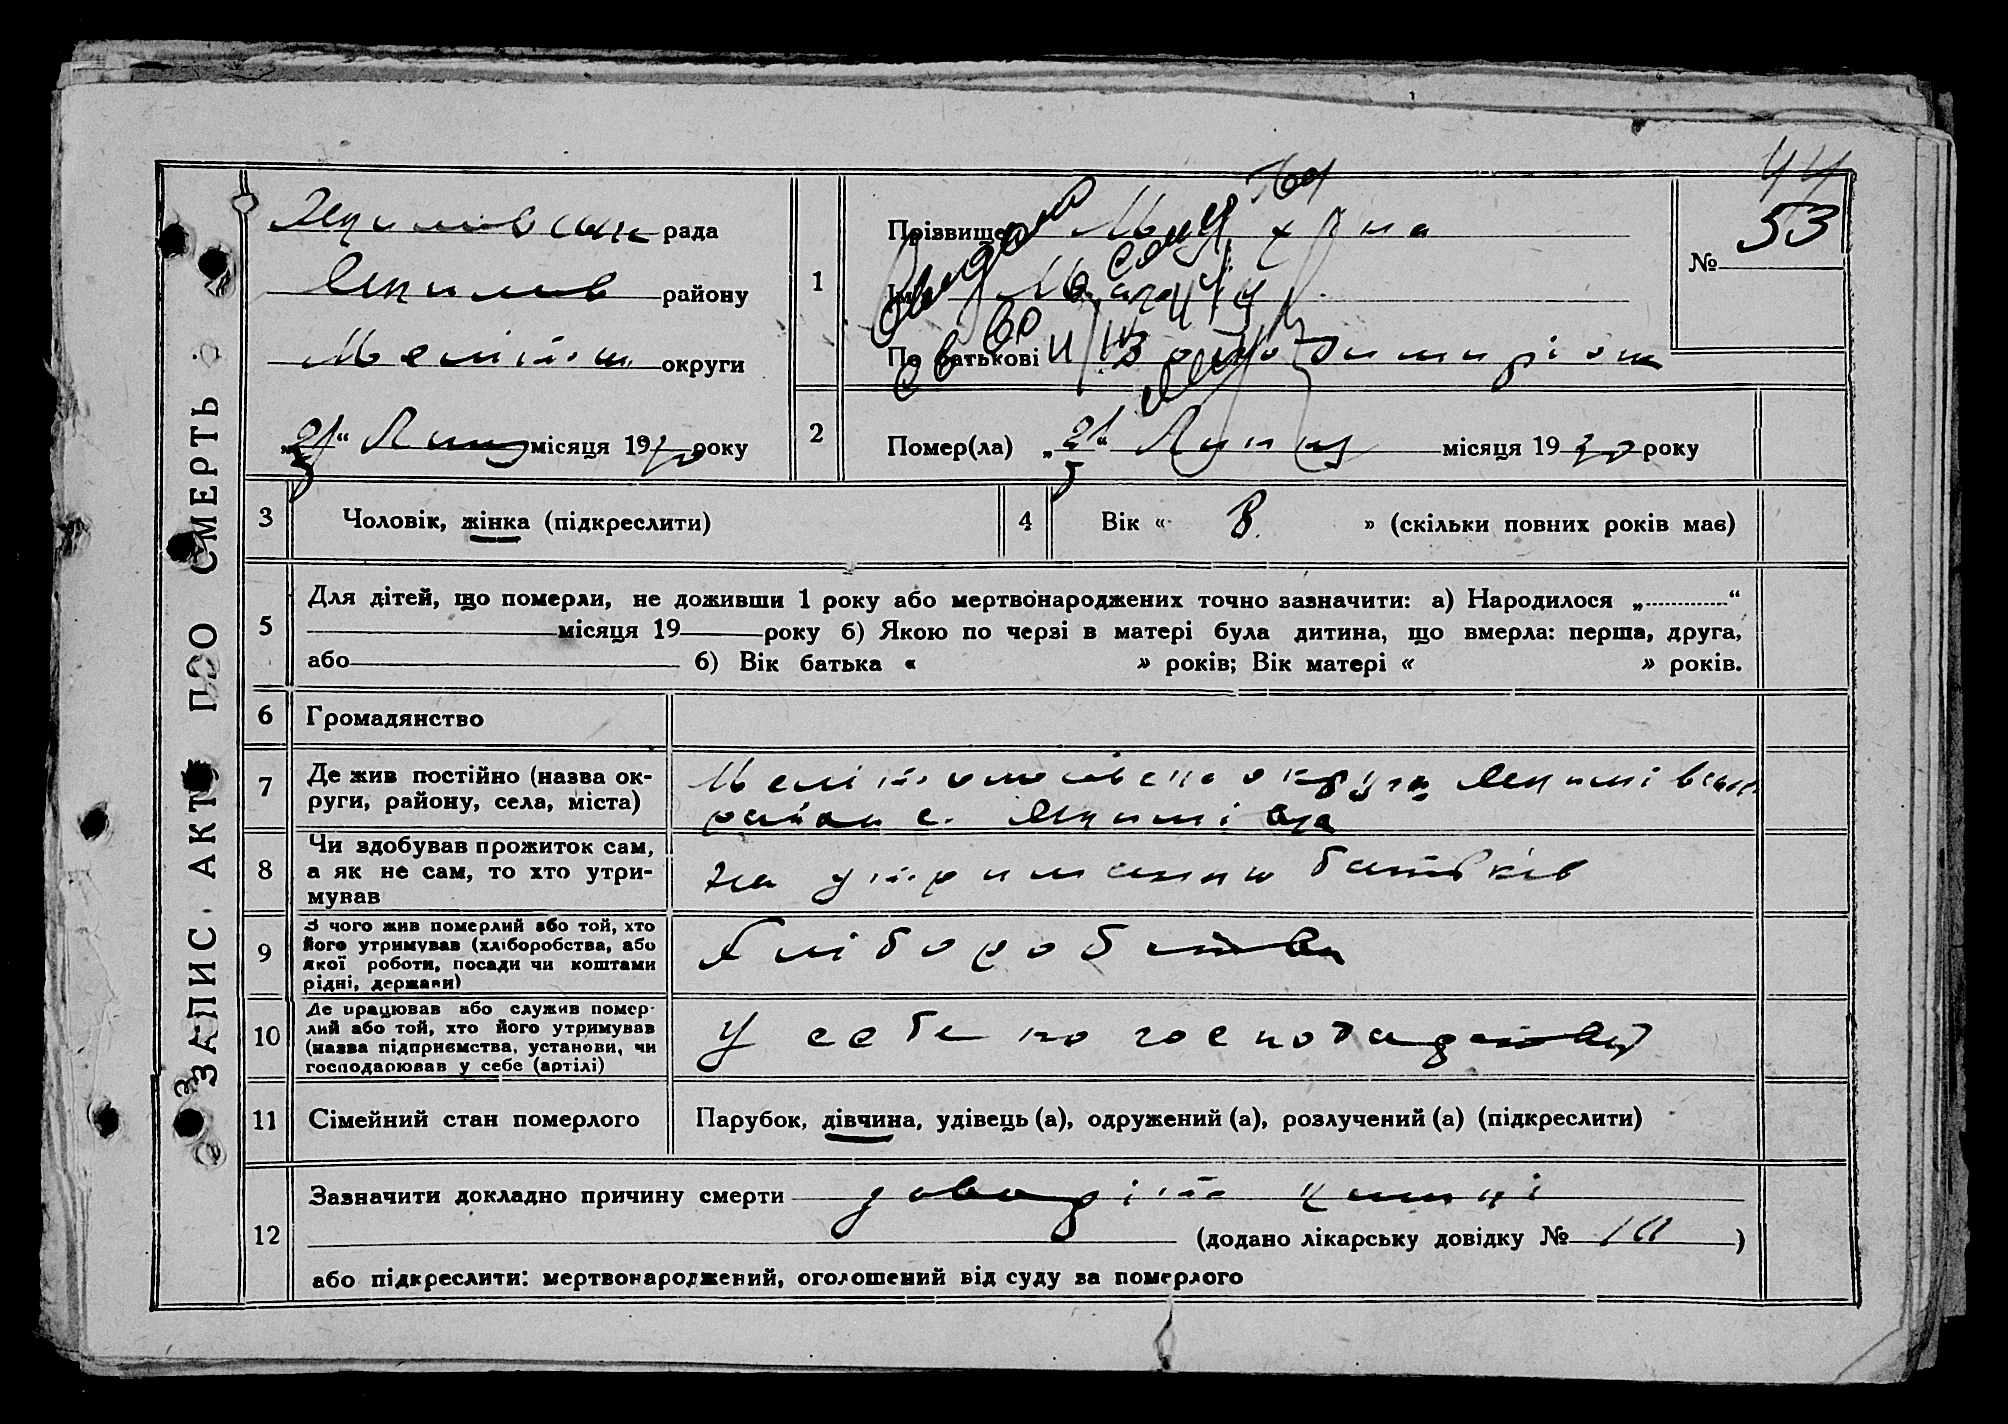 44
Якимівська рада
№ 53
Якимів району
Меліт округи
„21“ Липня місяця 1930 року
5
ЗАПИС АКТУ ПРО СМЕРТЬ
1
Прізвище
Ім
По батькові Володимирівна
2
Помер(ла) „21“ Липня місяця 1930 року
5
3
Чоловік, жінка (підкреслити)
4
Вік « 8 » (скільки повних років має)
5
Для дітей, що померли, не доживши 1 року або мертвонароджених точно зазначити: а) Народилося „............“
місяця 19 року б) Якою по черзі в матері була дитина, що вмерла: перша, друга,
або б) Вік батька « » років; Вік матері « » років.
6
Громадянство
7
Де жив постійно (назва ок-
руги, району, села, міста)
Мелітопольська округа Якимівськ
район с. Якимівка
8
Чи здобував прожиток сам,
а як не сам, то хто утри-
мував
на утриманню батьків
9
З чого жив померлий або той, хто
його утримував (хліборобства, або
якої роботи, посади чи коштами
рідні, держави)
Хліборобства
10
Де працював або служив помер-
лий або той, хто його утримував
(назва підприємства, установи, чи
господарював у себе (артілі)
У себе по господарству
11
Сімейний стан померлого
Парубок, дівчина, удівець (а), одружений (а), розлучений (а) (підкреслити)
12
Зазначити докладно причину смерти
(додано лікарську довідку № )
або підкреслити: мертвонароджений, оголошений від суду за померлого